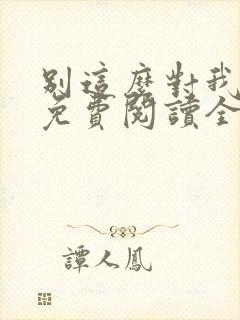 別這麼對我
免費閱讀全
譚人鳳